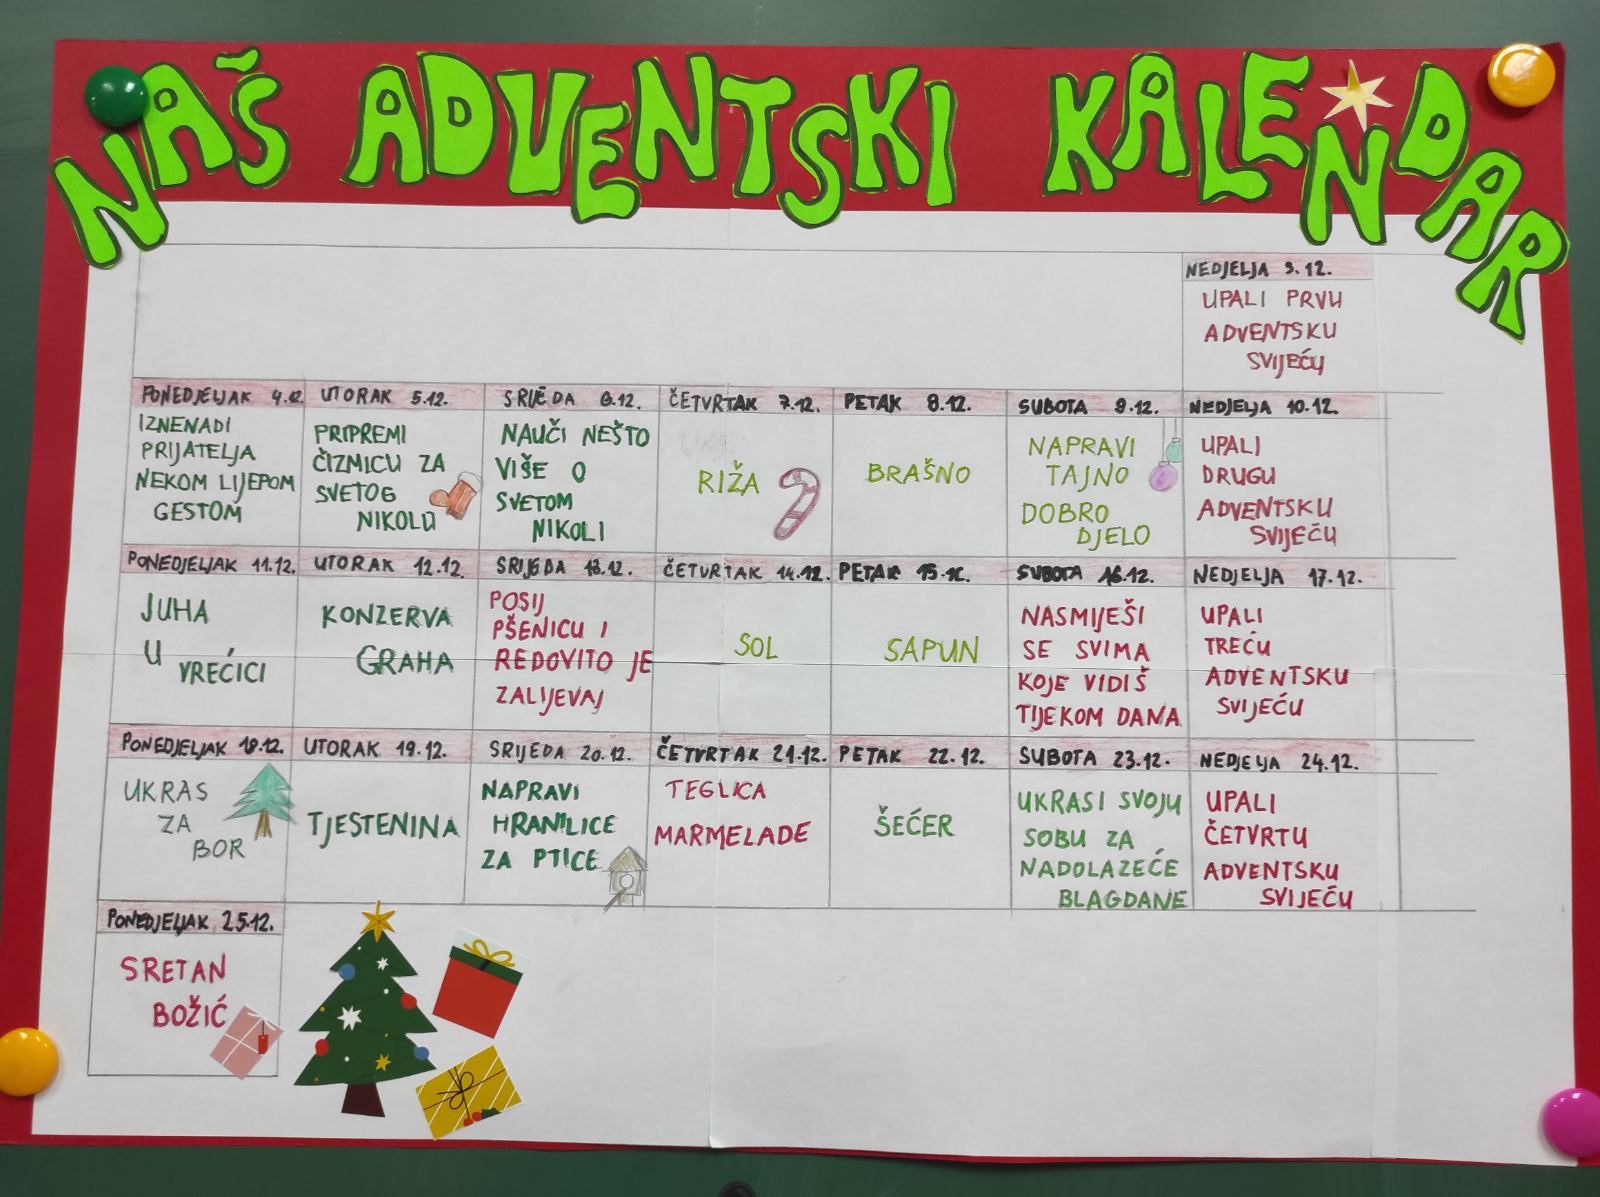 NAŠ ADVENTSKI KALENDAR
NEDJELJA 3.12.
UPALI PRVU
ADVENTSKU
SVIJEĆU
PONEDJELJAK 4.12.
IZNENADI
PRIJATELJA
NEKOM LIJEPOM
GESTOM
UTORAK 5.12.
PRIPREMI
ČIZMICU ZA
SVETOG
NIKOLU
SRIJEDA 6.12.
NAUČI NEŠTO
VIŠE O
SVETOM
NIKOLI
ČETVRTAK 7.12.
RIŽA
PETAK 8.12.
BRAŠNO
SUBOTA 9.12.
NAPRAVI
TAJNO
DOBRO
DJELO
NEDJELJA 10.12.
UPALI
DRUGU
ADVENTSKU
SVIJEĆU
PONEDJELJAK 11.12.
JUHA
U VREĆICI
UTORAK 12.12.
KONZERVA
GRAHA
SRIJEDA 13.12.
POSIJ
PŠENICU I
REDOVITO JE
ZALIJEVAJ
ČETVRTAK 14.12.
SOL
PETAK 15.12.
SAPUN
SUBOTA 16.12.
NASMIJEŠI
SE SVIMA
KOJE VIDIŠ
TIJEKOM DANA
NEDJELJA 17.12.
UPALI
TREĆU
ADVENTSKU
SVIJEĆU
PONEDJELJAK 18.12.
UKRAS
ZA
BOR
UTORAK 19.12.
TJESTENINA
SRIJEDA 20.12.
NAPRAVI
HRANILICE
ZA PTICE
ČETVRTAK 21.12.
TEGLICA
MARMELADE
PETAK 22.12.
ŠEĆER
SUBOTA 23.12.
UKRASI SVOJU
SOBU ZA
NADOLAZEĆE
BLAGDANE
NEDJELJA 24.12.
UPALI
ČETVRTU
ADVENTSKU
SVIJEĆU
PONEDJELJAK 25.12.
SRETAN
BOŽIĆ